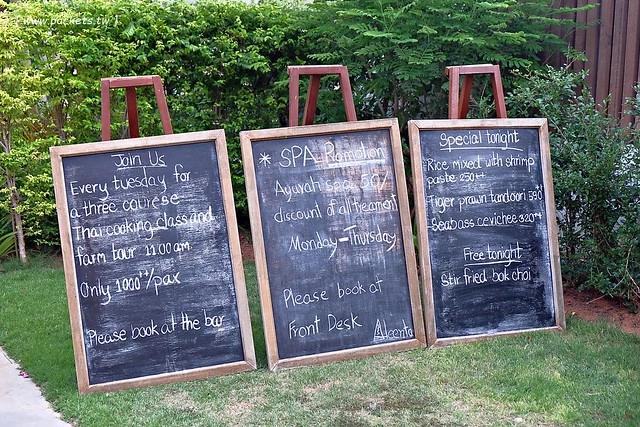 www.packets.tw
Join Us
Every tuesday for
a three course
Thai cooking class and
farm tour 11.00 am
Only 1000++/pax
Please book at the bar
* SPA-Romotion
Ayurah spa 50%
discount of all treament
Monday-Thursday
Please book at
Front Desk
Special tonight
Rice mixed with shrimp
paste 250++
Tiger prawn tandoori 590++
Seabass cevichee 320++
Free tonight
Stir fried bok choi